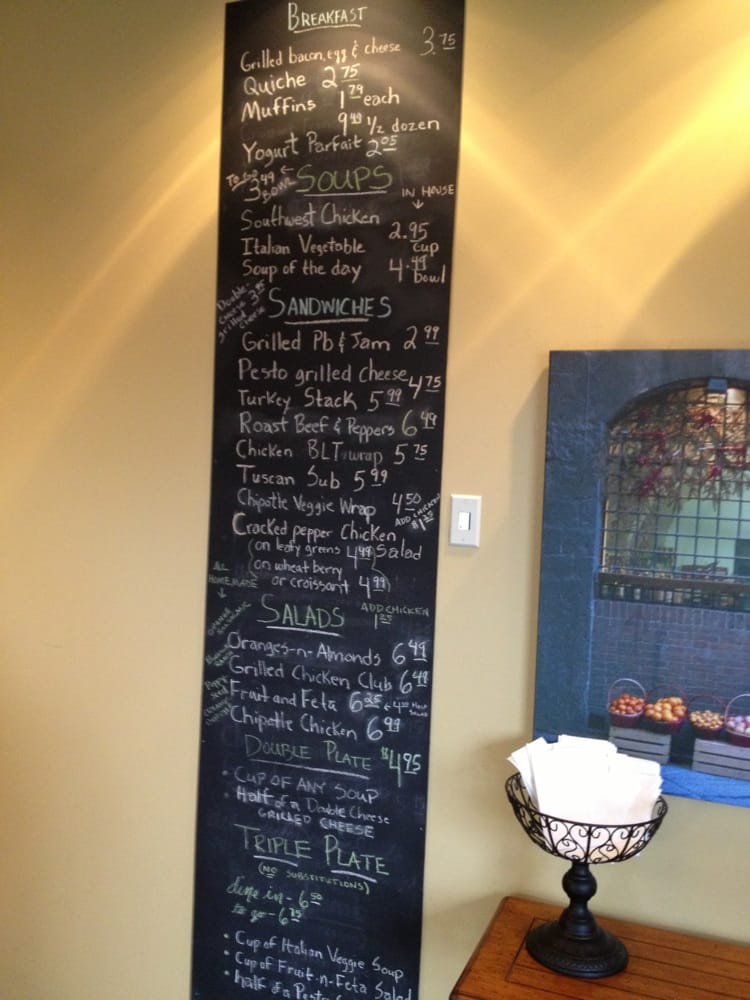 BREAKFAST
Grilled bacon, egg & cheese 3.75
Quiche 2 75
Muffins 1 79 each
9 49 1/2 dozen
Yogurt Parfait 2 05
To Go
3 49 BOWL
SOUPS
IN HOUSE
Southwest Chicken
2.95 cup
Italian Vegetable
Soup of the day 4.49 bowl
Double-cheese 3 95
grilled cheese
SANDWICHES
Grilled Pb & Jam 2 99
Pesto grilled cheese 4 75
Turkey Stack 5 99
Roast Beef & Peppers 6 49
Chicken BLT wrap 5 75
Tuscan Sub 5 99
Chipotle Veggie Wrap 4 50
ADD CHICKEN
$1 25
Cracked pepper Chicken
(on leafy greens 4 99 Salad
on wheat berry
or croissant) 4 99
ALL
HOMEMADE
SALADS
ADD CHICKEN
1 25
ORANGE
BALSAMIC
Poppy
Seed
Oranges-n-Almonds 6 49
Grilled Chicken Club 6 49
Fruit and Feta 6 25
Half
Salad
Chipotle Chicken 6 99
DOUBLE PLATE $4 95
• CUP OF ANY SOUP
• Half of a Double Cheese
GRILLED CHEESE
TRIPLE PLATE
(NO SUBSTITUTIONS)
dine in - 6 50
to go - 6 75
• Cup of Italian Veggie Soup
• Cup of Fruit-n-Feta Salad
• half of a Pesto